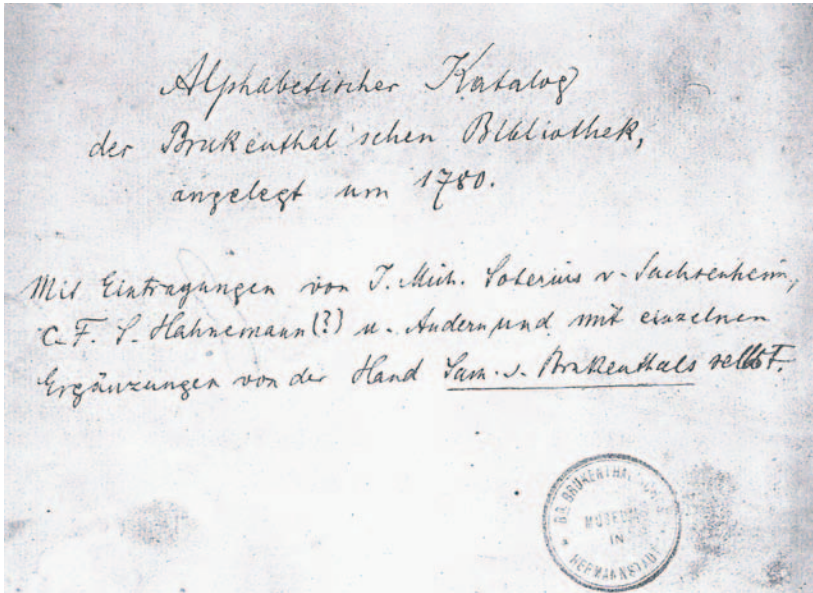 Alphabetischer Katalog
der Brukenthal'schen Bibliothek,
angelegt um 1780.
Mit Eintragungen von J. Mich. Soterius v. Sachsenheim,
C. F. S. Hahnemann (?) u. Andern und mit einzelnen
Ergänzungen von der Hand Sam. v. Brukenthals selbst.
BRUKENTHAL
MUSEUM
IN
HERMANNSTADT